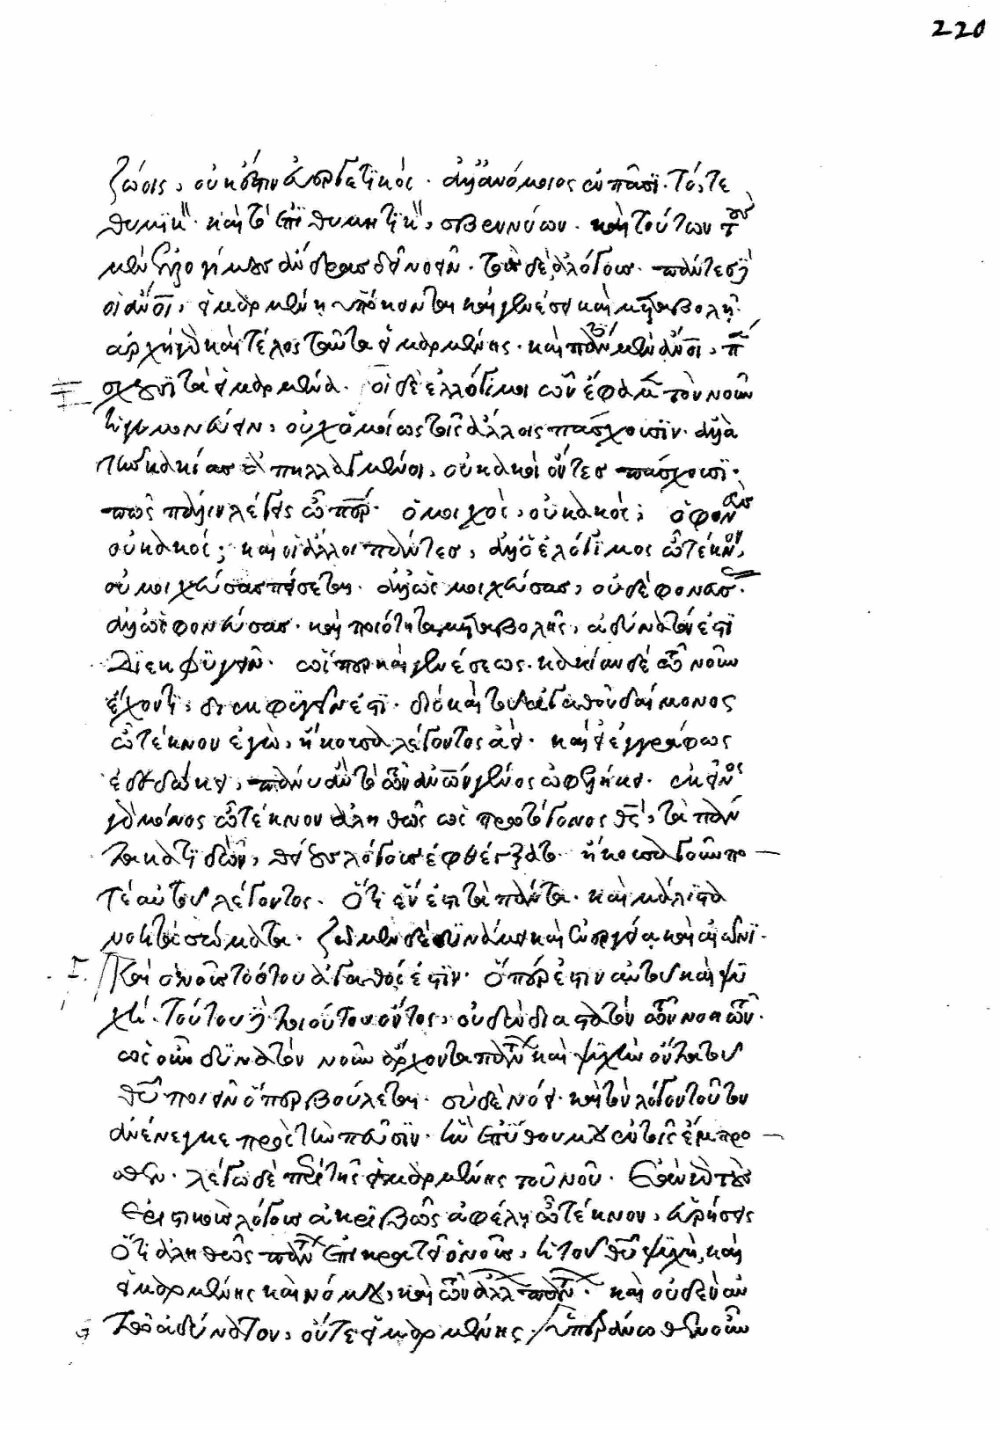 220
ζώοις, οὐκ ἔστιν εὐεργετικός. ἀλλ' ἀνόμοιος ἐν πᾶσι. τό, τε
θυμικὸν καὶ τὸ ἐπιθυμητικὸν, σβεννύων. καὶ τούτων τοὺς
μὲν ἐλλογίμους ἄνδρας δεῖ νοεῖν. τοὺς δὲ ἀλόγους. πάντες δὲ
οἱ ἄνθρωποι, εἱμαρμένῃ ὑπόκεινται καὶ γενέσει καὶ μεταβολῇ.
ἀρχὴ γὰρ καὶ τέλος ταῦτα εἱμαρμένης. καὶ πάντες μὲν ἄνθρωποι, πά
σχουσι τὰ εἱμαρμένα. οἱ δὲ ἐλλόγιμοι ὧν ἔφαμεν τὸν νοῦν
ἡγεμονεύειν, οὐχ ὁμοίως τοῖς ἄλλοις πάσχουσιν. ἀλλὰ
τῆς κακίας ἀπηλλαγμένοι, οὐ κακοὶ ὄντες πάσχουσι.
πῶς πάλιν λέγεις ὦ πάτερ. ὁ μοιχὸς, οὐ κακός; ὁ φονεὺς
οὐ κακός; καὶ οἱ ἄλλοι πάντες, ἀλλ' ὁ ἐλλόγιμος ὦ τέκνον,
οὐ μοιχεύσας πείσεται. ἀλλ' ὡς μοιχεύσας, οὐδὲ φονεύσας.
ἀλλ' ὡς φονεύσας. καὶ ποιότητα μεταβολῆς, ἀδύνατόν ἐστι
διεκφυγεῖν. ὥσπερ καὶ γενέσεως. κακίαν δὲ τῷ νοῦν
ἔχοντι, διεκφυγεῖν ἔστι. διὸ καὶ τοῦ ἀγαθοῦ δαίμονος
ὦ τέκνον ἐγὼ, ἤκουσα λέγοντος ἀεί. καὶ εἰ ἐγγράφως
ἐκδεδώκει, πάνυ ἂν τὸ τῶν ἀνθρώπων γένος ὠφελήκει. ἐκεῖνος
γὰρ μόνος ὦ τέκνον ἀληθῶς ὡς πρωτόγονος θεός, τὰ πάν
τα κατιδὼν, θείους λόγους ἐφθέγξατο. ἤκουσα γοῦν πο
τέ αὐτοῦ λέγοντος. ὅτι ἕν ἐστι τὰ πάντα. καὶ μάλιστα
νοητὰ σώματα. ζῶμεν δὲ δυνάμει καὶ ἐνεργείᾳ καὶ αἰῶνι.
Καὶ ὁ νοῦς τούτου ἀγαθός ἐστιν. ὅπερ ἐστὶν αὐτοῦ καὶ ψυ
χή. τούτου δὲ τοιούτου ὄντος, οὐδὲν διαστατὸν τῶν νοητῶν.
ὡς οὖν δυνατὸν νοῦν ἄρχοντα πάντων καὶ ψυχὴν ὄντα τοῦ
θεοῦ ποιεῖν ὅπερ βούλεται. σὺ δὲ νόει. καὶ τὸν λόγον τοῦτον
ἀνένεγκε πρὸς τὴν πεῦσιν. ἣν ἐπύθου μου ἐν τοῖς ἔμπρο
σθεν. λέγω δὲ περὶ τῆς εἱμαρμένης τοῦ νοῦ. Ἐὰν γὰρ τοὺς
ἐριστικοὺς λόγους ἀκριβῶς ἀφέλῃ ὦ τέκνον, εὑρήσεις
ὅτι ἀληθῶς πάντων ἐπικρατεῖ ὁ νοῦς, ἡ τοῦ θεοῦ ψυχὴ, καὶ
εἱμαρμένης καὶ νόμου, καὶ τῶν ἄλλων πάντων. καὶ οὐδὲν αὐ
τῷ ἀδύνατον, οὔτε εἱμαρμένης ὑπεράνω θεῖναι